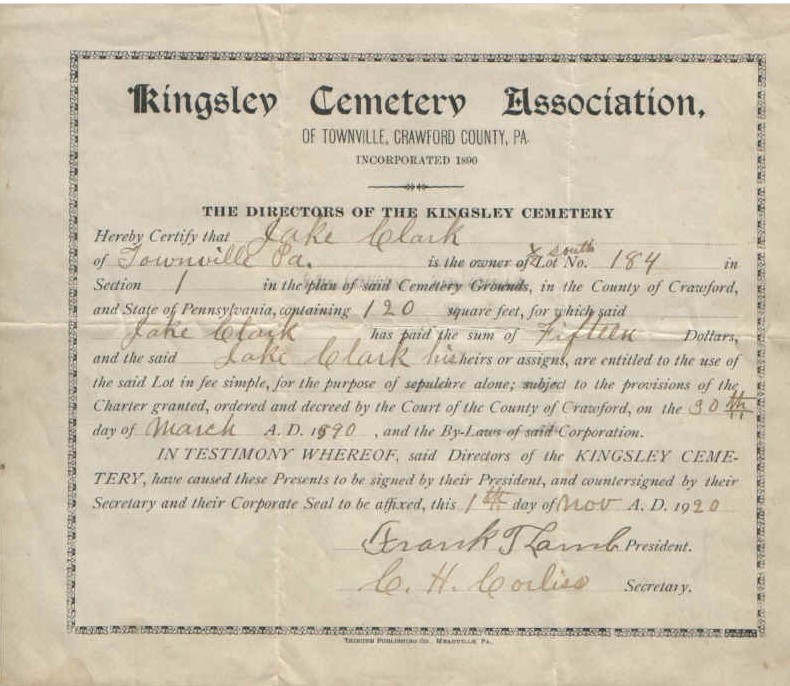 Kingsley Cemetery Association,
OF TOWNVILLE, CRAWFORD COUNTY, PA.
INCORPORATED 1890
THE DIRECTORS OF THE KINGSLEY CEMETERY
Hereby Certify that Jake Clark
of Townville Pa. is the owner of south Lot No. 184 in
Section 1 in the plan of said Cemetery Grounds, in the County of Crawford,
and State of Pennsylvania, containing 120 square feet, for which said
Jake Clark has paid the sum of Fifteen Dollars,
and the said Jake Clark his heirs or assigns, are entitled to the use of
the said Lot in fee simple, for the purpose of sepulchre alone; subject to the provisions of the
Charter granted, ordered and decreed by the Court of the County of Crawford, on the 30th
day of March A. D. 1890, and the By-Laws of said Corporation.
IN TESTIMONY WHEREOF, said Directors of the KINGSLEY CEME-
TERY, have caused these Presents to be signed by their President, and countersigned by their
Secretary and their Corporate Seal to be affixed, this 1th day of Nov A. D. 1920
Frank T Lamb President.
C. H. Corliss Secretary.
TRIBUNE PUBLISHING CO., MEADVILLE, PA.